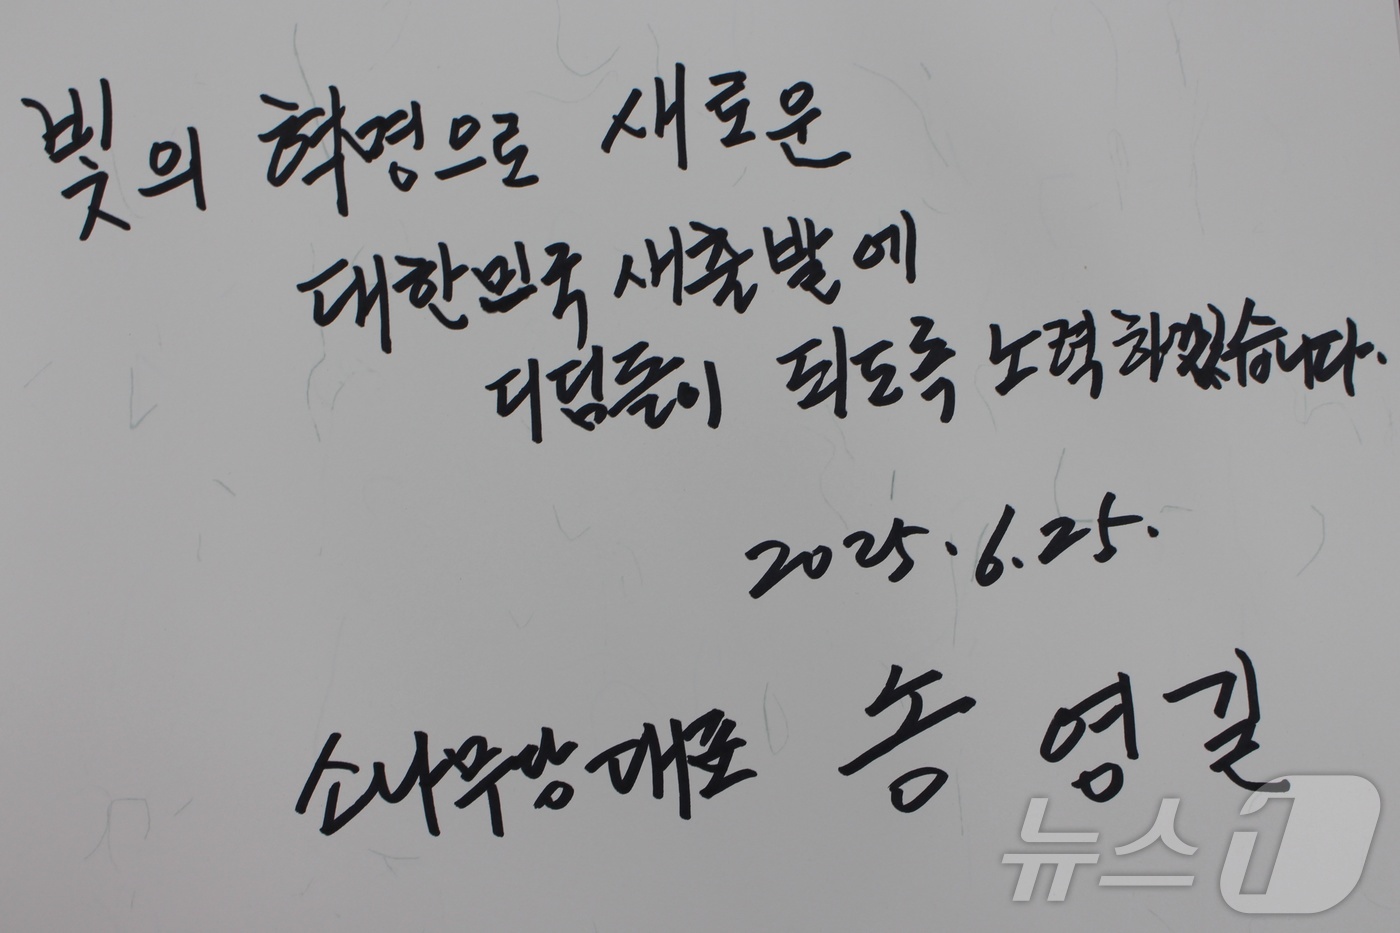 빛의 혁명으로 새로운
대한민국 새출발에
디딤돌이 되도록 노력하겠습니다.
2025. 6. 25.
소나무당 대표 송영길
뉴스1